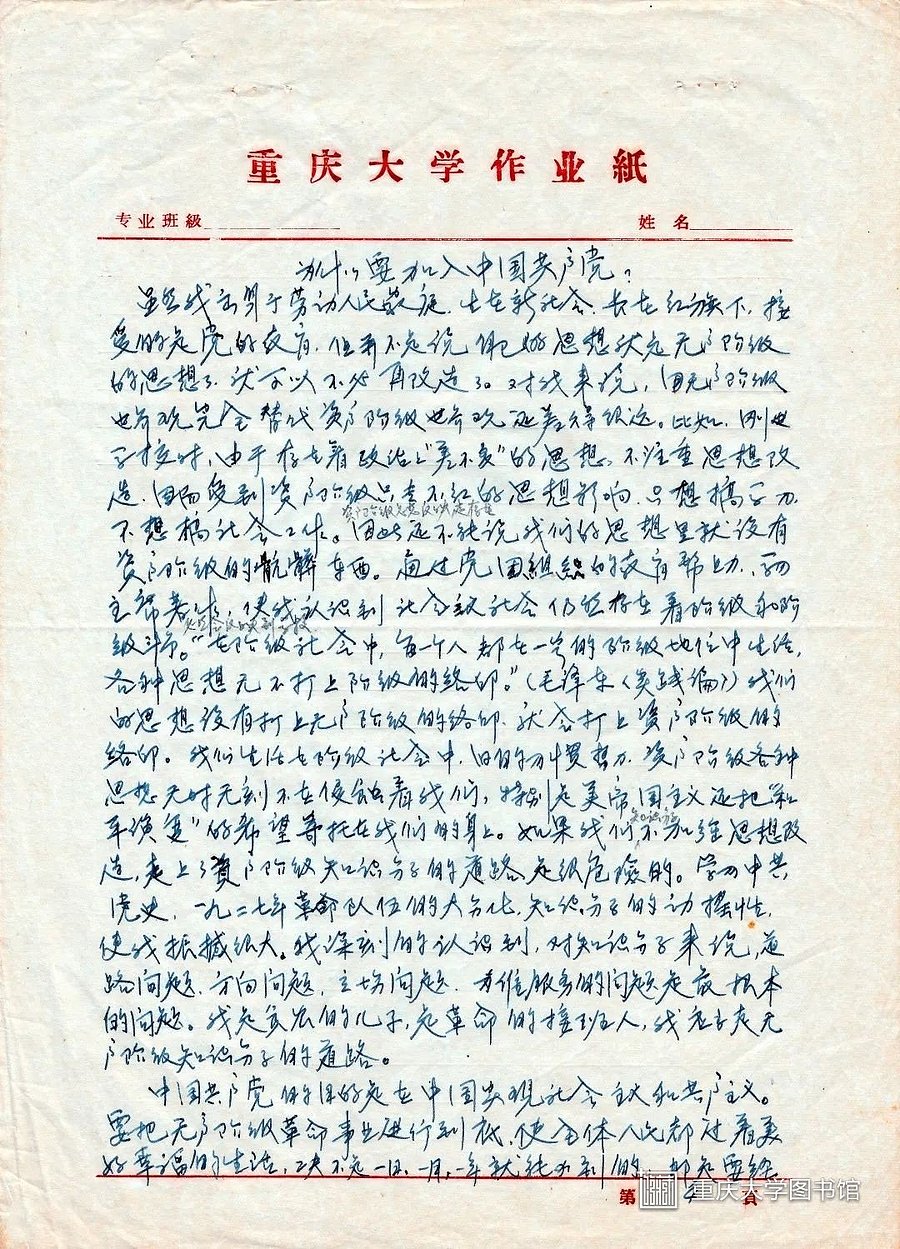 重庆大学作业紙
专业班級
姓名
为什么要加入中国共产党。
虽然我出身于劳动人民家庭，生在新社会，长在红旗下，接
受的是党的教育，但并不是说思想就是无产阶级
的思想了，就可以不必再改造了。对我来说，用无产阶级
世界观完全替代资产阶级世界观还差得很远。比如，刚进
学校时，由于存在着政治上"差不多"的思想，不注重思想改
造，因而受到资产阶级只专不红的思想影响，只想搞学习，
不想搞社会工作。因此还不能说我们的思想里就没有
资产阶级的骯髒东西。通过党团組織的教育帮助，学习
主席著作，使我认识到社会主义社会仍然存在着阶级和阶
级斗争。"在阶级社会中，每一个人都在一定的阶级地位中生活，
各种思想无不打上阶级的烙印。"（毛泽东《实践論》）我们
的思想没有打上无产阶级的烙印，就会打上资产阶级的
烙印。我们生活在阶级社会中，旧的习惯势力，资产阶级各种
思想无时无刻不在侵蚀着我们，特别是美帝国主义还把"和
平演变"的希望寄托在我们的身上。如果我们不加强思想改
造，走上了資产阶级知识分子的道路，是很危險的。学习中共
党史，一九二七年革命队伍的大分化，知识分子的动摇性，
使我振撼很大。我深刻的认识到，对知识分子来说，道
路问题，方向问题，立场问题，为谁服务的问题是最根本
的问题。我是贫农的儿子，是革命的接班人，我应该走无
产阶级知识分子的道路。
中国共产党的目的是在中国实现社会主义和共产主义。
要把无产阶级革命事业进行到底，使全体人民都过着美
好幸福的生活，决不是一日、一月、一年就能办到的，那是要经
第 4 頁
重庆大学图书馆